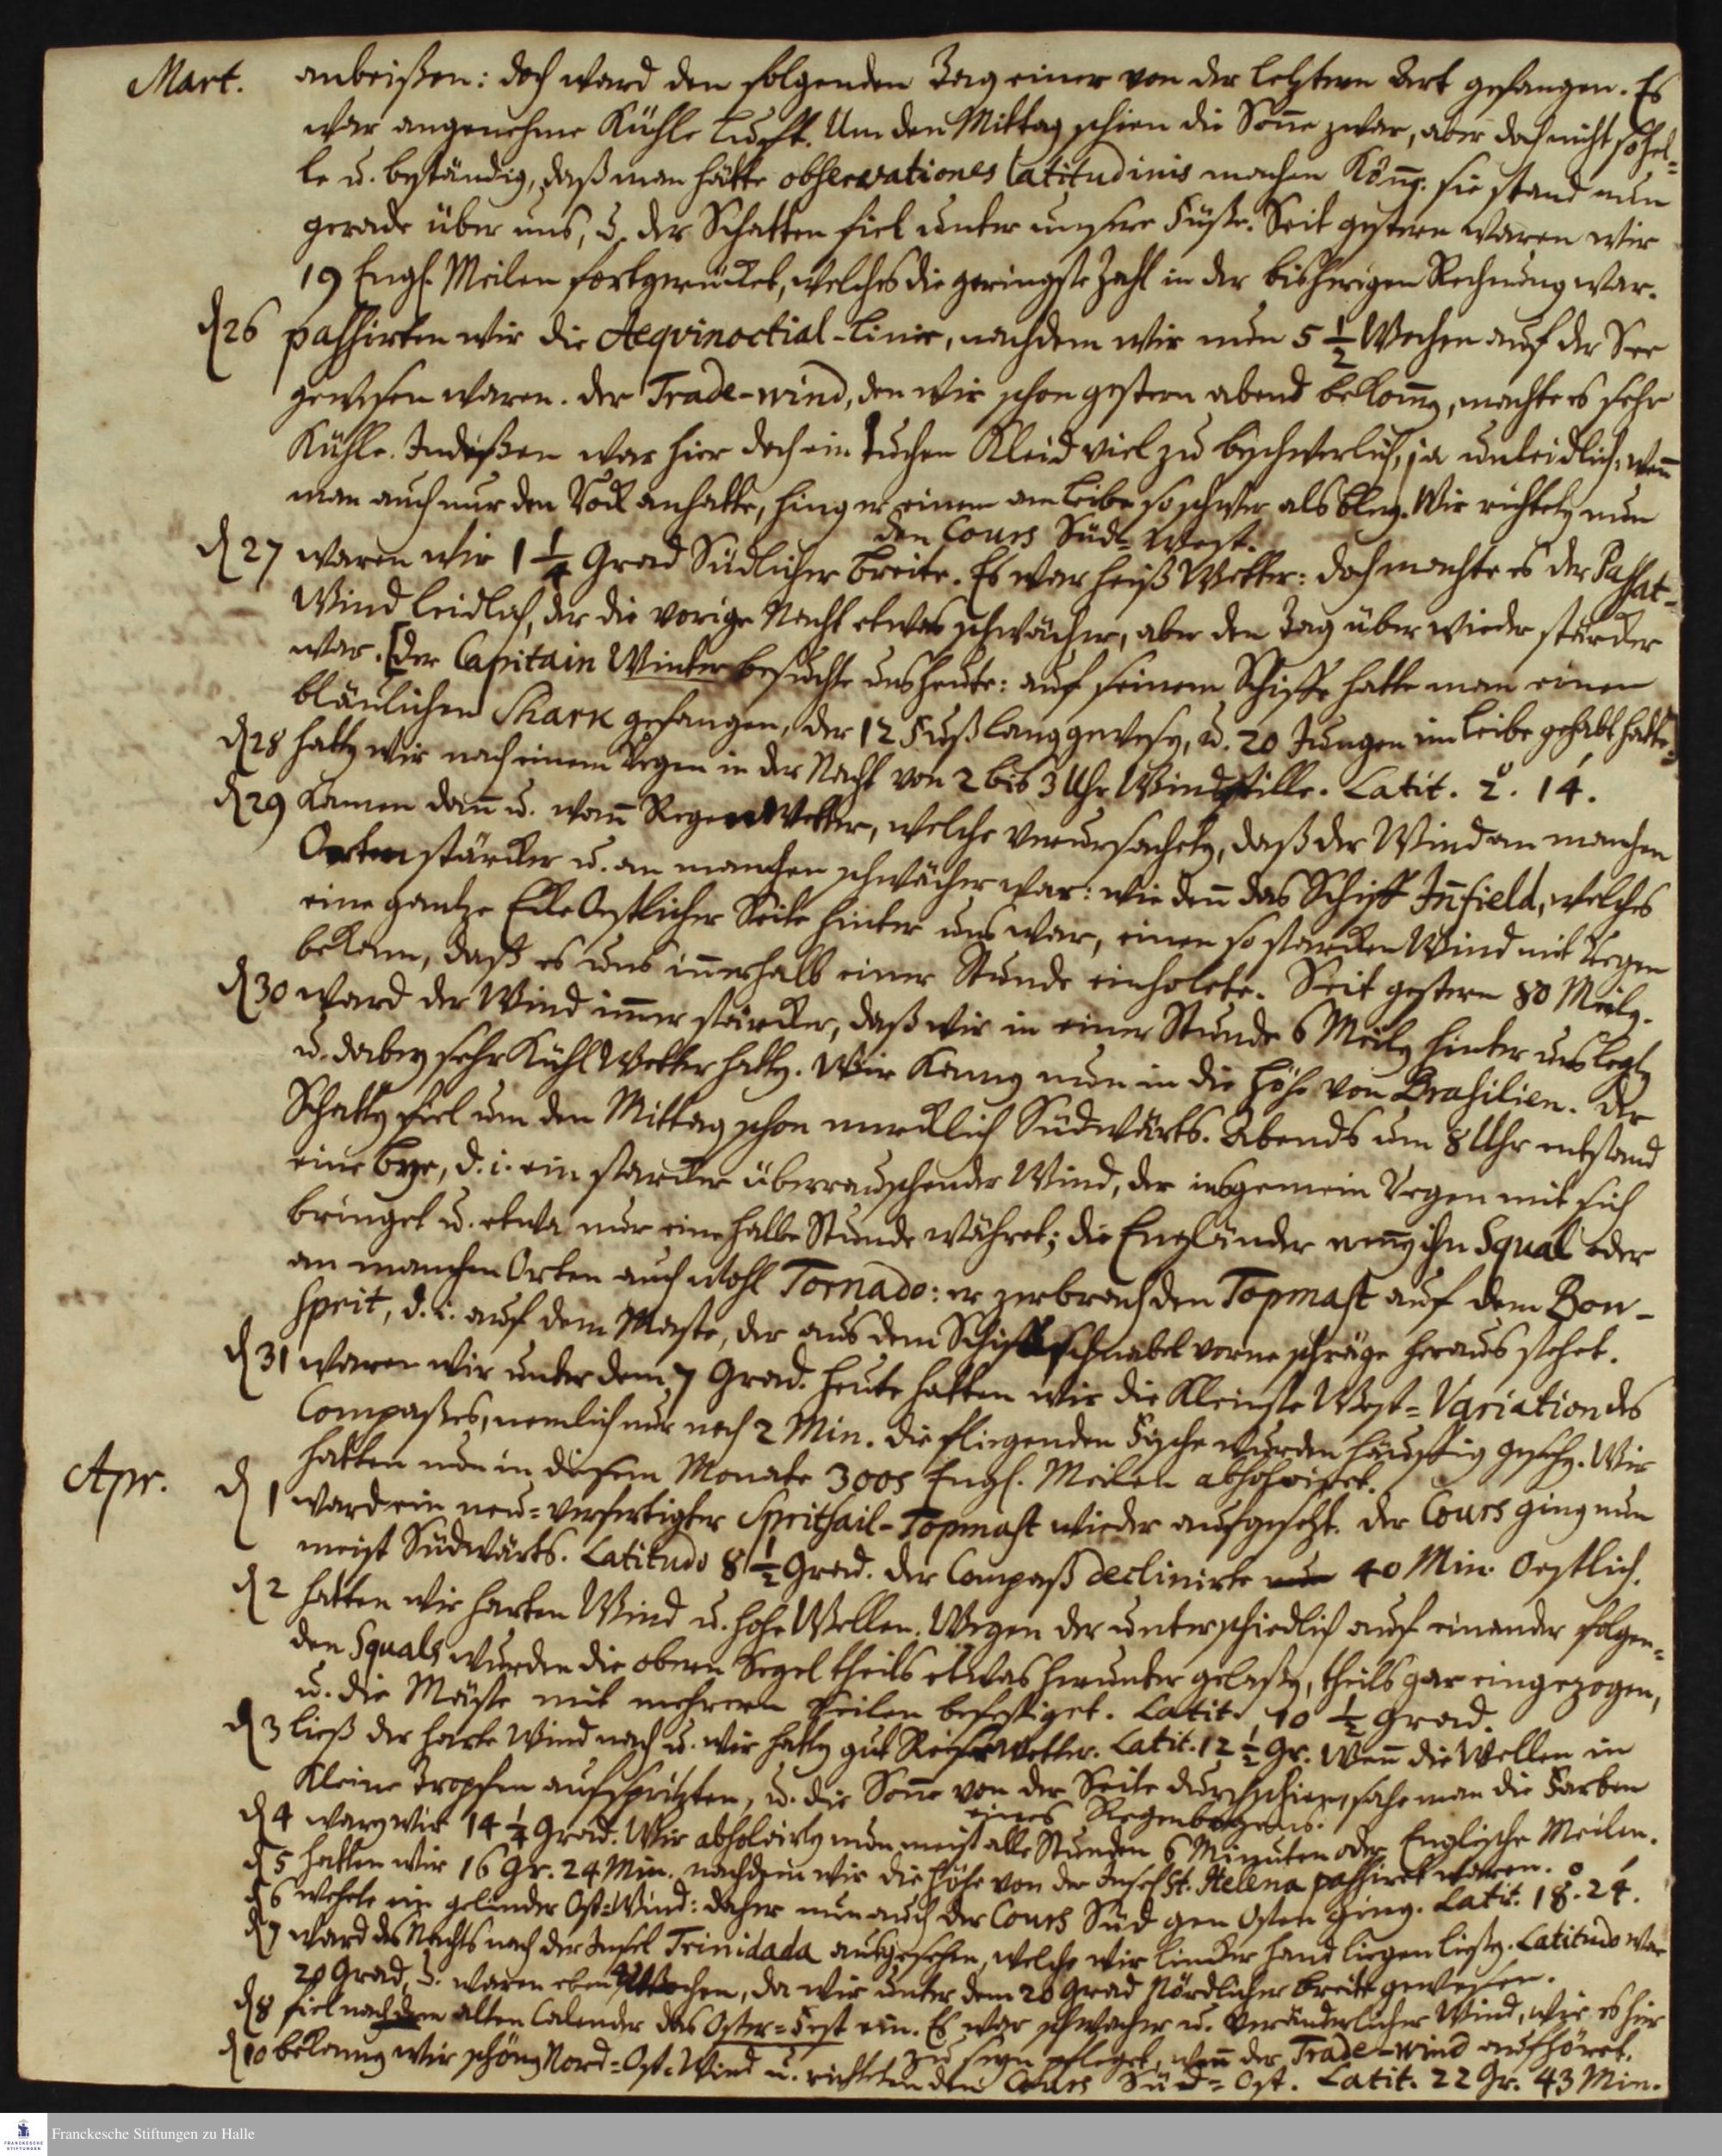 Mart. anbeißen: doch ward den folgenden Tag einer von der letztern Art gefangen. Es
war angenehme Kühle Lufft. Um den Mittag schien die Soñe zwar, aber doch nicht so hel=
le u. beständig, daß man hätte observationes Latitudinis machen Köñen: sie stand nun
gerade über uns, u. der Schatten fiel unter unsere Füße. Seit gestern waren wir
19 Engl. Meilen fortgerücket, welches die geringste Zahl in der bisherigen Rechnung war.
d 26 passirten wir die Aeqvinoctial-Linie, nachdem wir nun 5 1/2 Wochen auf der See
gewesen waren. der Trade-wind, den wir schon gestern abend bekom̃en, machte es sehr
Kühle. Indeßen war hier doch ein Tuchen Kleid viel zu beschwerlich, ja unleidlich; weñ
man auch nur den Rock anhatte, hing er einem am Leibe so schwer als Bley. Wir richteten nun
den Cours Süd=West.
d 27 waren wir 1 1/4 Grad Südlicher Breite. Es war heiß Wetter: doch machte es der Passat=
Wind leidlich, der die vorige Nacht etwas schwächer, aber den Tag über wieder stärcker
war. [Der Capitain Winter besuchte uns heute: auf seinem Schiffe hatte man einen
bläulichen Shark gefangen, der 12 Fuß lang gewesen, u. 20 Jungen im Leibe gehabt hatte.]
d 28 hatten wir nach einem Regen in der Nacht von 2 bis 3 Uhr Windstille. Latit. 2°. 14'.
d 29 Kamen dañ u. wañ Regen Wetter, welche verursacheten, daß der Wind an manchen
Orten stärcker u. an manchen schwächer war: wie deñ das Schiff Iñfield, welches
eine gantze Ecke Oestlicher Seite hinter uns war, einen so starcken Wind mit Regen
bekam, daß es uns iñerhalb einer Stunde einholete. Seit gestern 80 Meilen.
d 30 ward der Wind im̃er stärcker, daß wir in einer Stunde 6 Meilen hinter uns legten
u. dabey sehr Kühl Wetter hatten. Wir Kamen nun in die Höhe von Brasilien. Der
Schatten fiel um den Mittag schon mercklich Südwärts. Abends um 8 Uhr entstand
eine Bye, d. i. ein starcker überrauschender Wind, der insgemein Regen mit sich
bringet u. etwa nur eine halbe Stunde währet; die Engländer neñen ihn Squal oder
an manchen Orten auch wohl Tornado: er zerbrach den Topmast auf dem Bow-
sprit, d. i. auf dem Maste, der aus dem Schiffschnabel vorne schräge heraus stehet.
d 31 waren wir unter dem 7 Grad. Heute hatten wir die Kleinste West=Variation des
Compaßes, nemlich nur noch 2 Min. Die fliegenden Fische wurden häuffig gesehen. Wir
hatten nun in diesem Monate 3005 Engl. Meilen absolviret.
Apr. d 1 ward ein neu=verfertigter Spritsail-Topmast wieder aufgesetzt. Der Cours ging nun
meist Südwärts. Latitudo 8 1/2 Grad. der Compaß declinirte nur 40 Min. Oestlich.
d 2 hatten wir harten Wind u. hohe Wellen. Wegen der unterschiedlich auf einander folgen=
den Squals wurden die obern Segel theils etwas herunter gelaßen, theils gar eingezogen,
u. die Mäste mit mehrern Seilen befestiget. Latit. 10 1/2 Grad.
d 3 ließ der harte Wind nach u. wir hatten gut Reise Wetter. Latit. 12 1/2 Gr. Weñ die Wellen in
Kleine Tropfen aufspritzten, u. die Soñe von der Seite durchschien, sahe man die Farben
eines Regenbogens.
d 4 waren wir 14 1/4 Grad. Wir absolvirten nun meist alle Stunden 6 Minuten oder Englische Meilen.
d 5 hatten wir 16 Gr. 24 Min. nachdem wir die Höhe von der Insel St. Helena passiret waren.
d 6 wehete ein gelinder Ost=Wind: daher nun auch der Cours Süd gen Osten ging. Latit. 18°. 24'.
d 7 ward des Nachts nach der Insel Trinidada ausgesehen, welche wir lincker Hand liegen ließen. Latitudo war
20 Grad, u. waren eben Wochen, da wir unter dem 20 Grad Nördlicher Breite gewesen.
d 8 fiel nach dem alten Calender das Oster=Fest ein. Es war schwacher u. veränderlicher Wind, wie es hier
zu seyn pfleget, weñ der Trade-wind aufhöret.
d 10 bekamen wir schönen Nord=Ost=Wind u. richteten den Cours Süd=Ost. Latit. 22 Gr. 43 Min.
Franckesche Stiftungen zu Halle